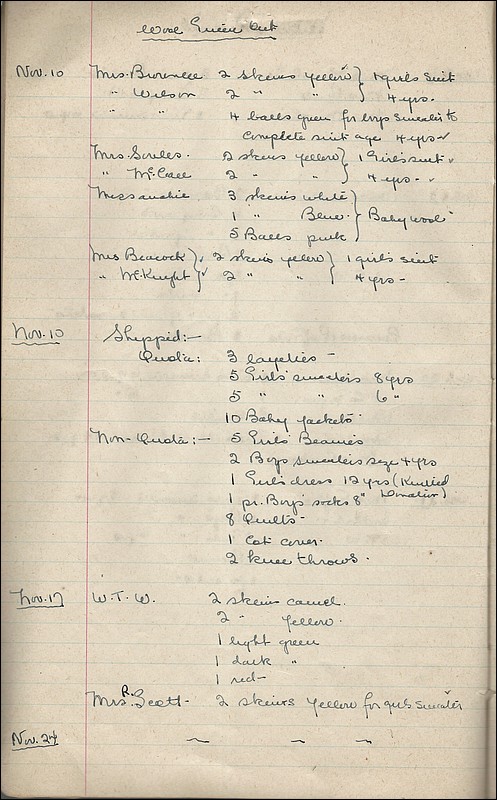 Wool Given Out
Nov. 10 Mrs. 2 skeins yellow } 1 girls suit
" Wilson 2 " " } 4 yrs.
" " 4 balls green for boys sweater to
complete suit age 4 yrs
Mrs. 2 skeins yellow } 1 Girls suit
" McCall 2 " " } 4 yrs.
Miss 3 skeins white }
1 " Blue } Baby wool
5 Balls pink }
Mrs Peacock } 2 skeins yellow } 1 girls suit
" McKnight } 2 " " } 4 yrs-
Nov. 10 Shipped:-
Quota: 3 layettes -
5 Girls' sweaters 8 yrs
5 " " 6 "
10 Baby jackets
Non-Quota:- 5 Girls' Beanies
2 Boys sweaters size 4 yrs
1 Girls dress 12 yrs (Knitted
1 pr. Boys' socks 8" Donation)
8 Quilts-
1 Cot cover.
2 knee throws.
Nov. 17 W.T.W. 2 skeins camel.
2 " yellow.
1 light green
1 dark "
1 red-
Mrs R. Scott- 2 skeins yellow for girls sweater
Nov. 24 ~ ~ ~